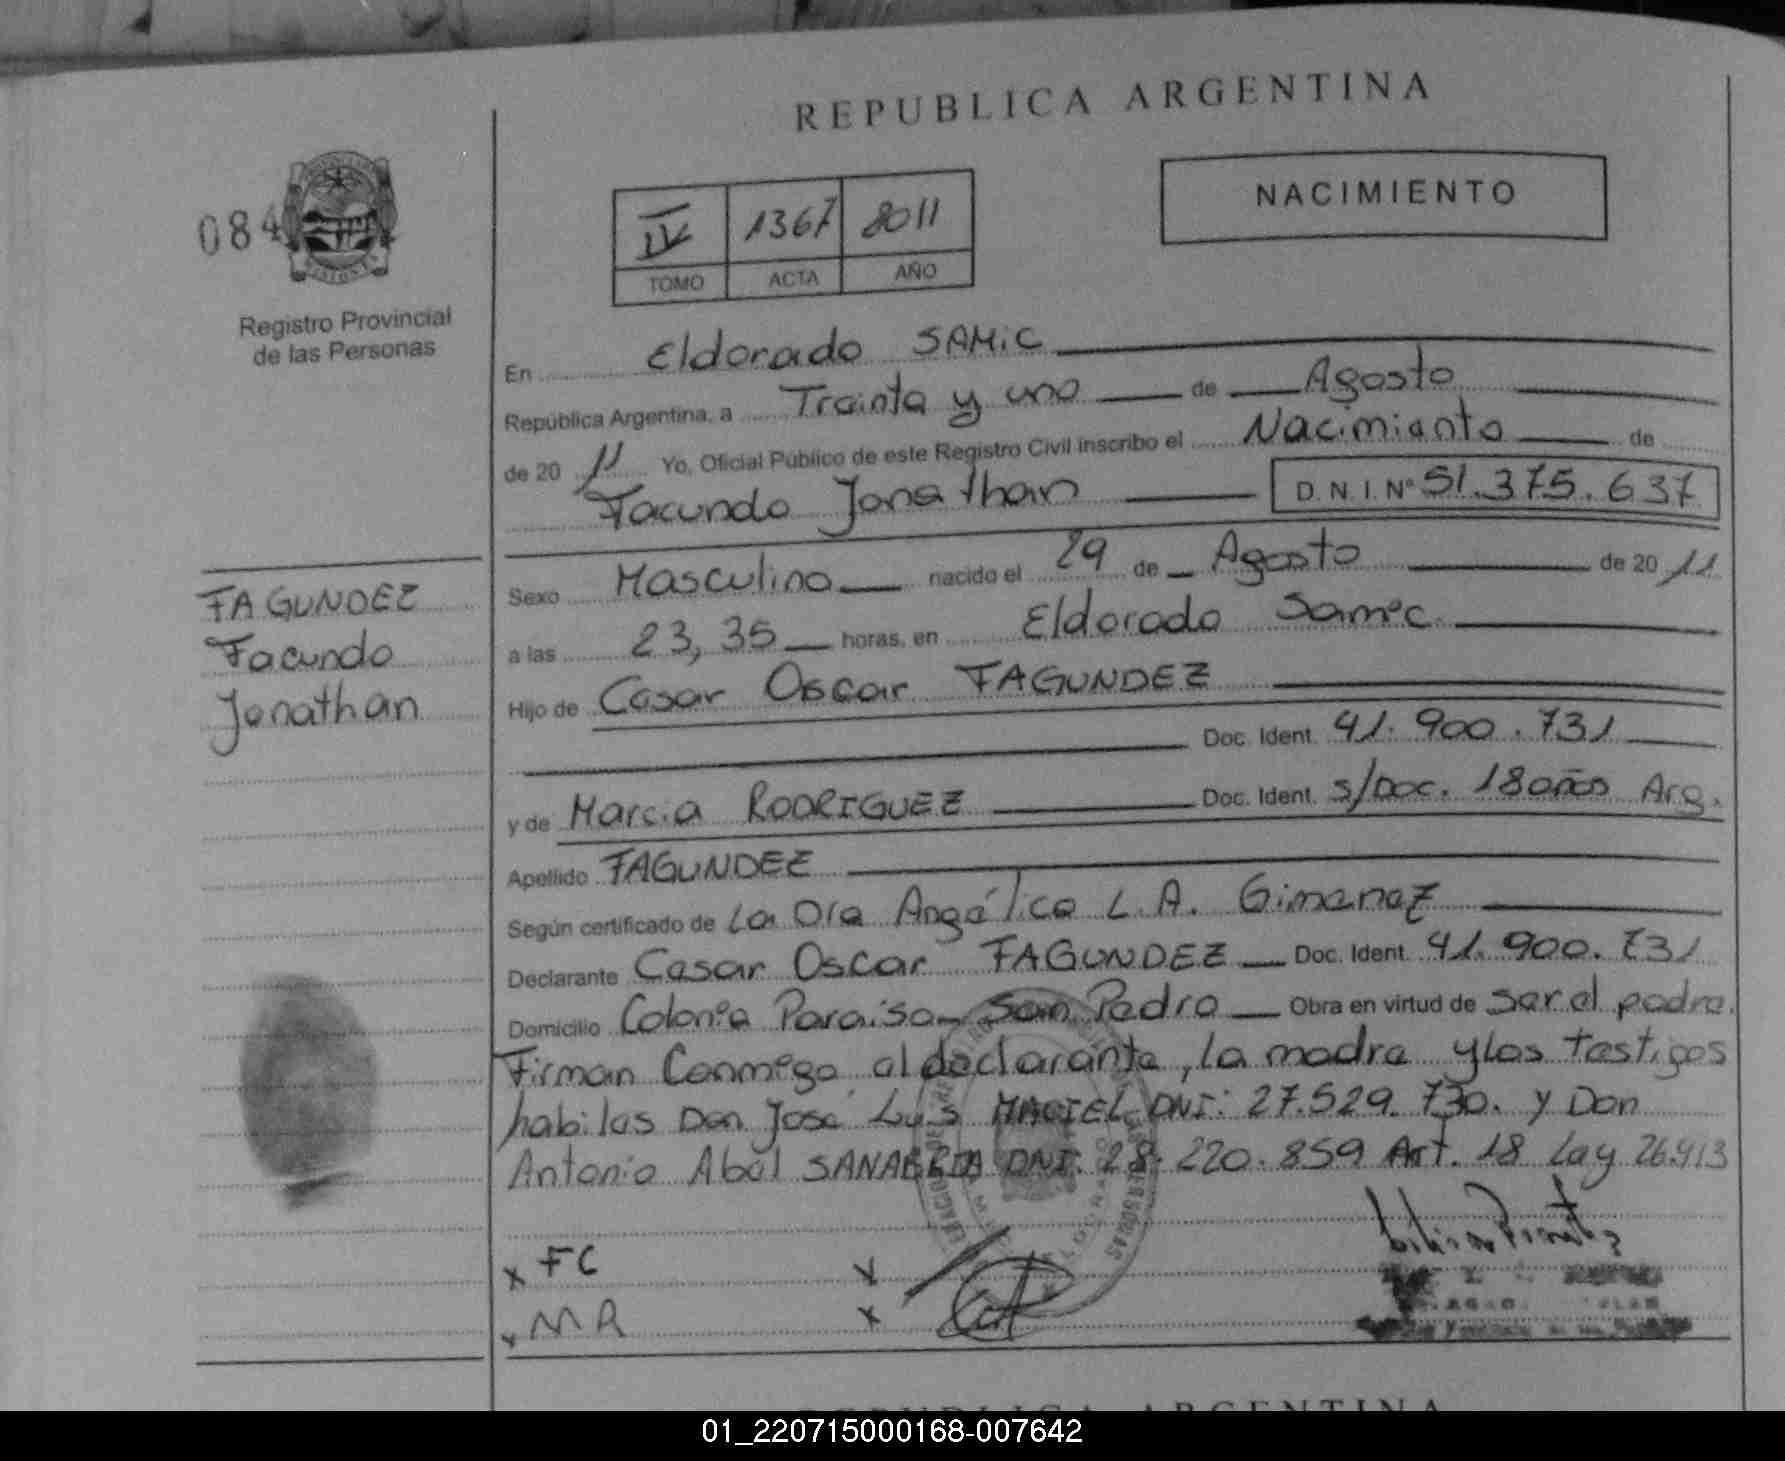 REPUBLICA ARGENTINA
NACIMIENTO
084
IV 1367 2011
TOMO ACTA AÑO
Registro Provincial
de las Personas
En Eldorado SAMiC
República Argentina, a Treinta y uno de Agosto
de 20 11 Yo, Oficial Público de este Registro Civil inscribo el Nacimiento de
Facundo Jonathan D.N.I.Nº 51.375.637
FAGUNDEZ
Facundo
Jonathan
Sexo Masculino nacido el 29 de Agosto de 20 11
a las 23,35 horas, en Eldorado Samic
Hijo de Cesar Oscar FAGUNDEZ
Doc. Ident. 41.900.731
y de Marcia RODRIGUEZ Doc. Ident. s/Doc. 18 años Arg.
Apellido FAGUNDEZ
Según certificado de La Dra Angélica L.A. Gimenez
Declarante Cesar Oscar FAGUNDEZ Doc. Ident. 41.900.731
Domicilio Colonia Paraiso - San Pedro Obra en virtud de ser el padre.
Firman Conmigo el declarante, la madre y los testigos
habiles Don José Luis MACIEL DNI: 27.529.730. y Don
Antonio Abel SANABRIA DNI: 28.220.859 Art. 18 Ley 26.413
x FC x
x MR x
REPUBLICA ARGENTINA
01_220715000168-007642